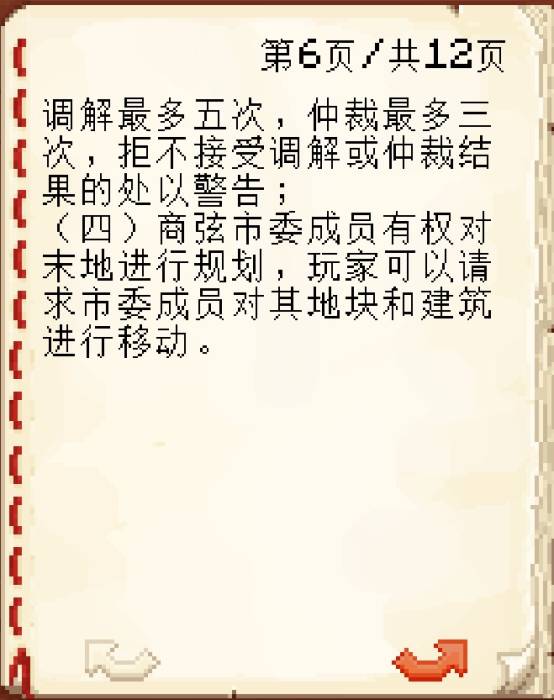 第6页/共12页
调解最多五次，仲裁最多三
次，拒不接受调解或仲裁结
果的处以警告；
（四）商弦市委成员有权对
末地进行规划，玩家可以请
求市委成员对其地块和建筑
进行移动。